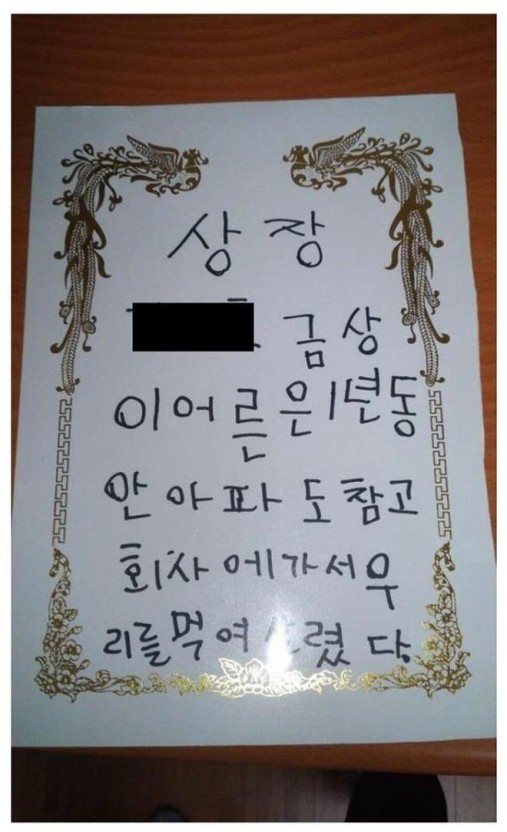 상장
금상
이어른은1년동
안아파도참고
회사에가서우
리를먹여살렸다.